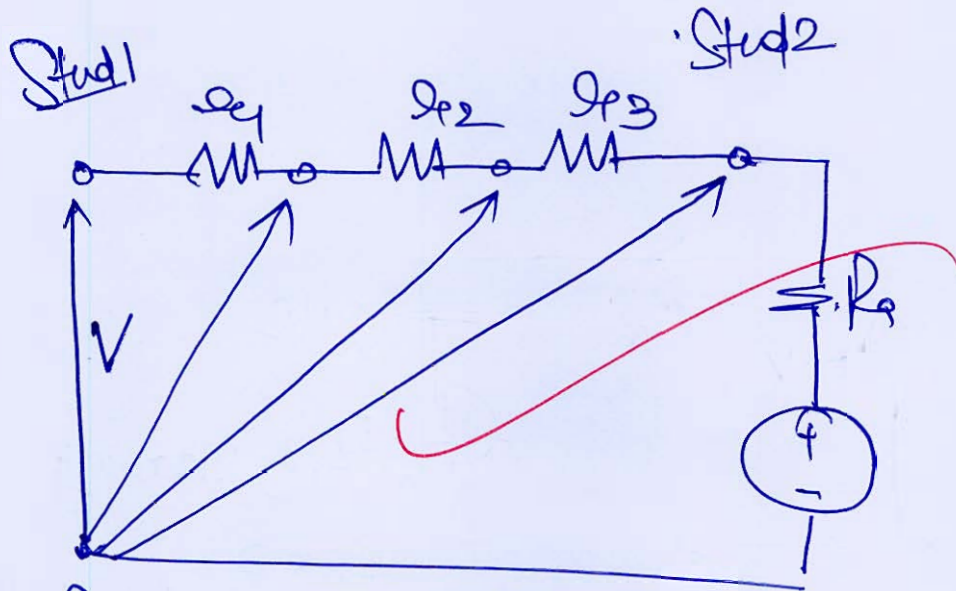 Stud1
Stud2
r1 r2 r3
V
Ra
+
-